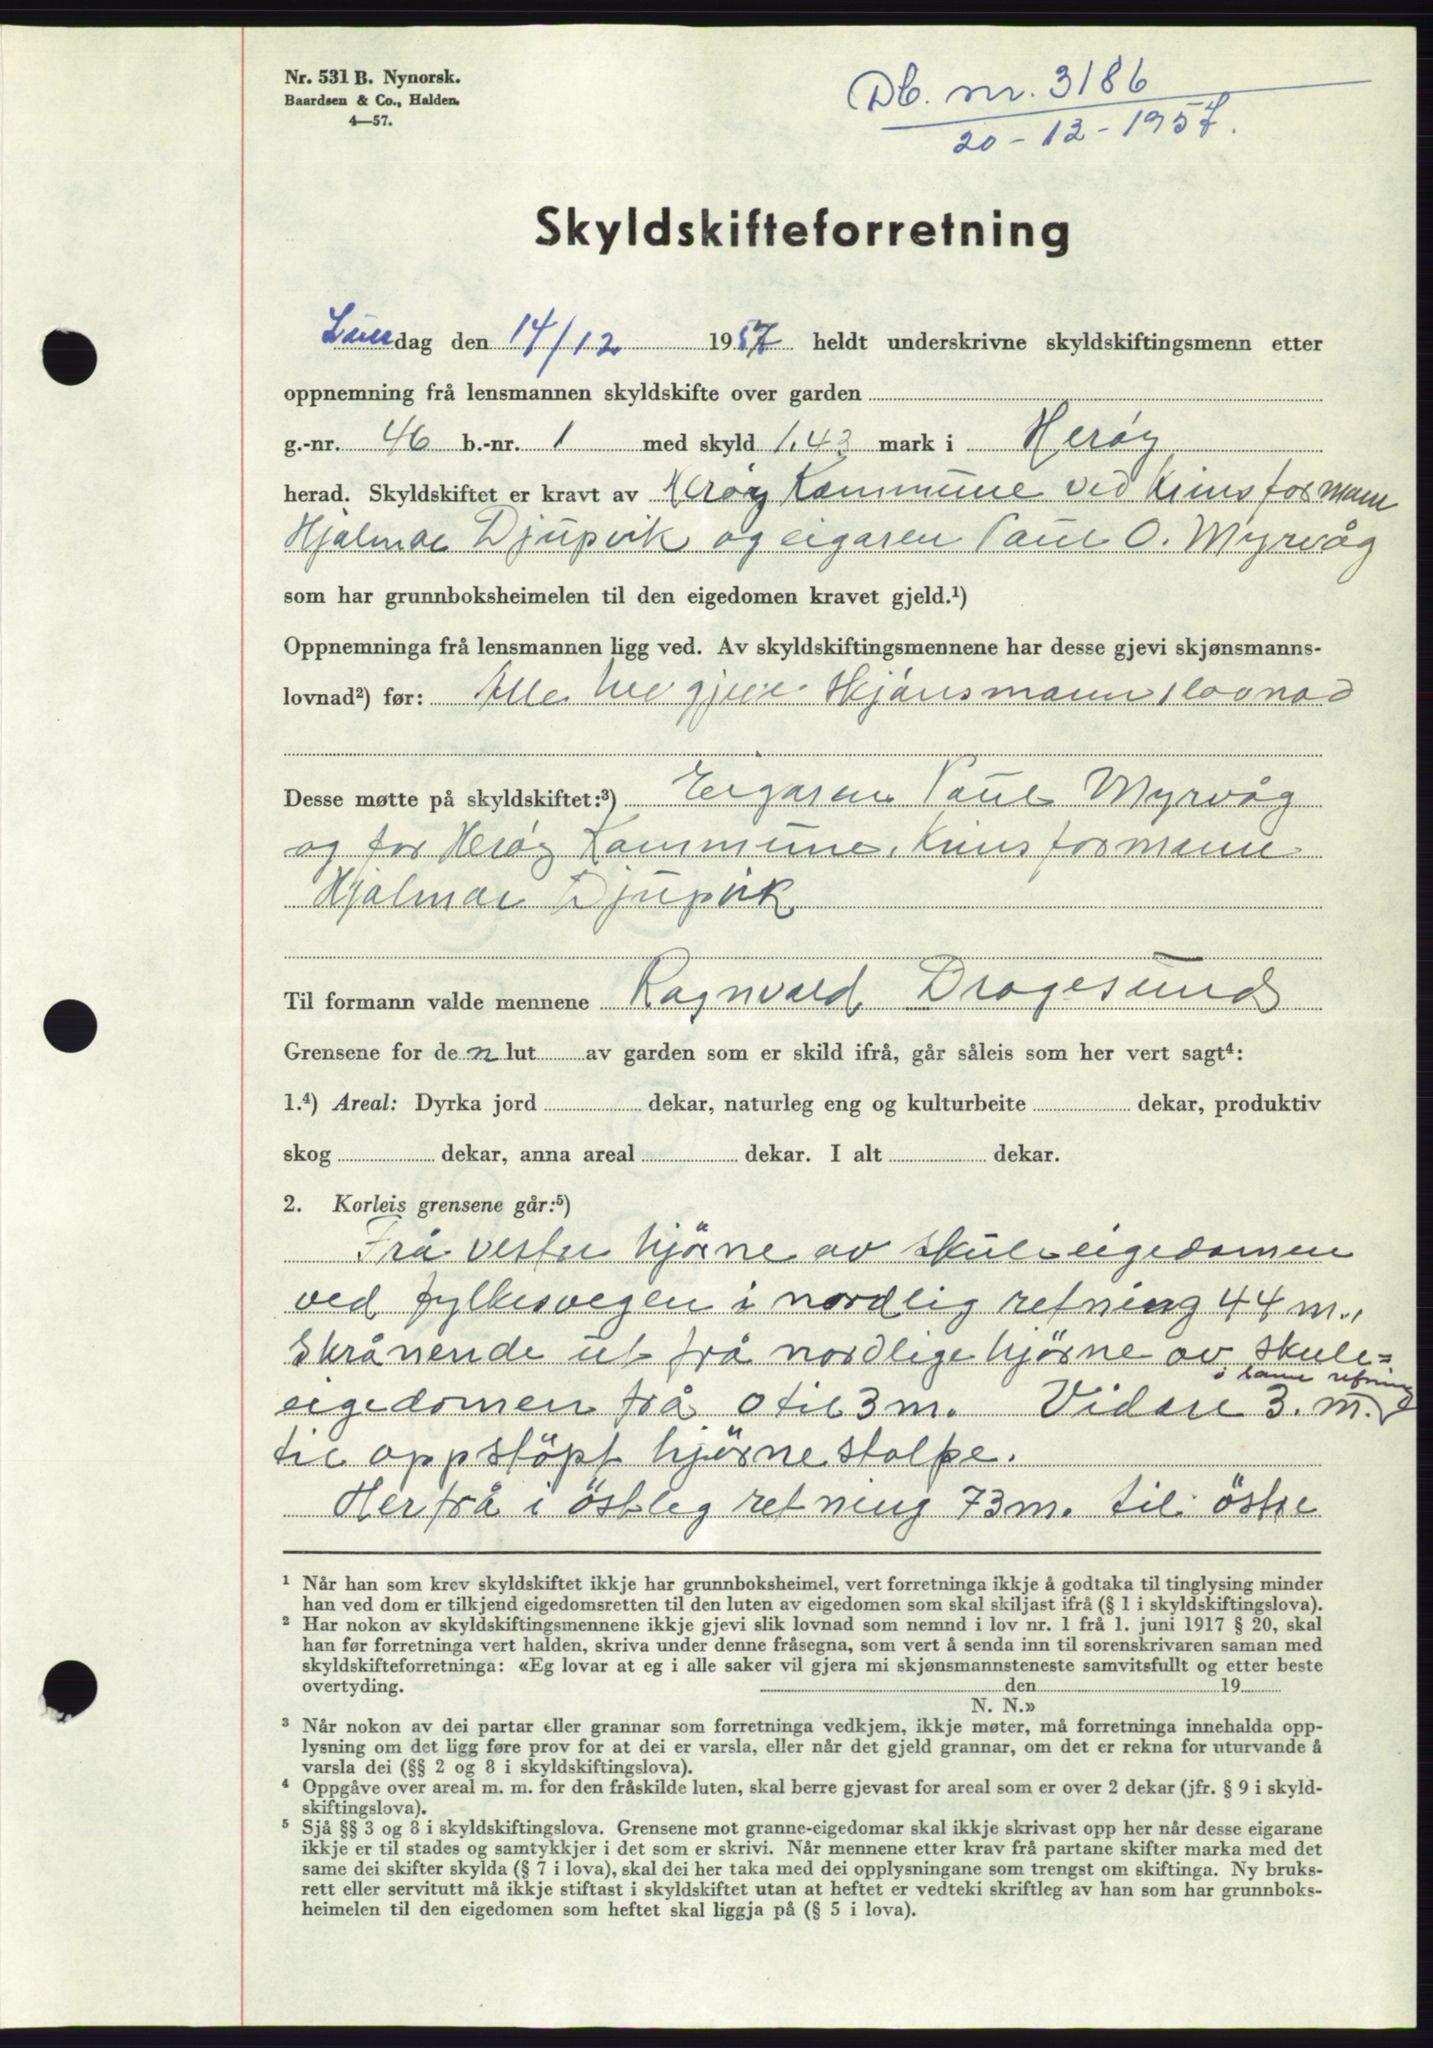 Nr. 531 B. Nynorsk.
Baardsen & Co., Halden.
4—57.
Db. nr. 3186
20-12-1957.
Skyldskifteforretning
Laurdag den 14/12 1957 heldt underskrivne skyldskiftingsmenn etter
oppnemning frå lensmannen skyldskifte over garden
g.-nr. 46 b.-nr. 1 med skyld 1.43 mark i Herøy
herad. Skyldskiftet er kravt av Herøy Kommune ved formann
Hjalmar Djupvik og eigaren Paul O. Myrvåg
som har grunnboksheimelen til den eigedomen kravet gjeld.¹)
Oppnemninga frå lensmannen ligg ved. Av skyldskiftingsmennene har desse gjevi skjønsmanns-
lovnad²) før: Alle skjönsmannslovnad
Desse møtte på skyldskiftet:³) Eigaren Paul Myrvåg
og for Herøy Kommune, formann
Hjalmar Djupvik
Til formann valde mennene Ragnvald Dragesund
Grensene for den lut av garden som er skild ifrå, går såleis som her vert sagt⁴:
1.⁴) Areal: Dyrka jord dekar, naturleg eng og kulturbeite dekar, produktiv
skog dekar, anna areal dekar. I alt dekar.
2. Korleis grensene går:⁵)
Frå vestre hjörne av skuleeigedomen
ved fylkesvegen i nordlig retning 44 m.,
skrånende ut frå nordlige hjörne av skule=
i same retning
eigedomen frå 0 til 3 m. Vidare 3. m.
til oppstöpt hjörnestolpe.
Herfrå i östleg retning 73 m. til östre
¹ Når han som krev skyldskiftet ikkje har grunnboksheimel, vert forretninga ikkje å godtaka til tinglysing minder
han ved dom er tilkjend eigedomsretten til den luten av eigedomen som skal skiljast ifrå (§ 1 i skyldskiftingslova).
² Har nokon av skyldskiftingsmennene ikkje gjevi slik lovnad som nemnd i lov nr. 1 frå 1. juni 1917 § 20, skal
han før forretninga vert halden, skriva under denne fråsegna, som vert å senda inn til sorenskrivaren saman med
skyldskifteforretninga: «Eg lovar at eg i alle saker vil gjera mi skjønsmannsteneste samvitsfullt og etter beste
overtyding. den 19
N. N.»
³ Når nokon av dei partar eller grannar som forretninga vedkjem, ikkje møter, må forretninga innehalda opp-
lysning om det ligg føre prov for at dei er varsla, eller når det gjeld grannar, om det er rekna for uturvande å
varsla dei (§§ 2 og 8 i skyldskiftingslova).
⁴ Oppgåve over areal m. m. for den fråskilde luten, skal berre gjevast for areal som er over 2 dekar (jfr. § 9 i skyld-
skiftingslova).
⁵ Sjå §§ 3 og 8 i skyldskiftingslova. Grensene mot granne-eigedomar skal ikkje skrivast opp her når desse eigarane
ikkje er til stades og samtykkjer i det som er skrivi. Når mennene etter krav frå partane skifter marka med det
same dei skifter skylda (§ 7 i lova), skal dei her taka med dei opplysningane som trengst om skiftinga. Ny bruks-
rett eller servitutt må ikkje stiftast i skyldskiftet utan at heftet er vedteki skriftleg av han som har grunnboks-
heimelen til den eigedomen som heftet skal liggja på (§ 5 i lova).